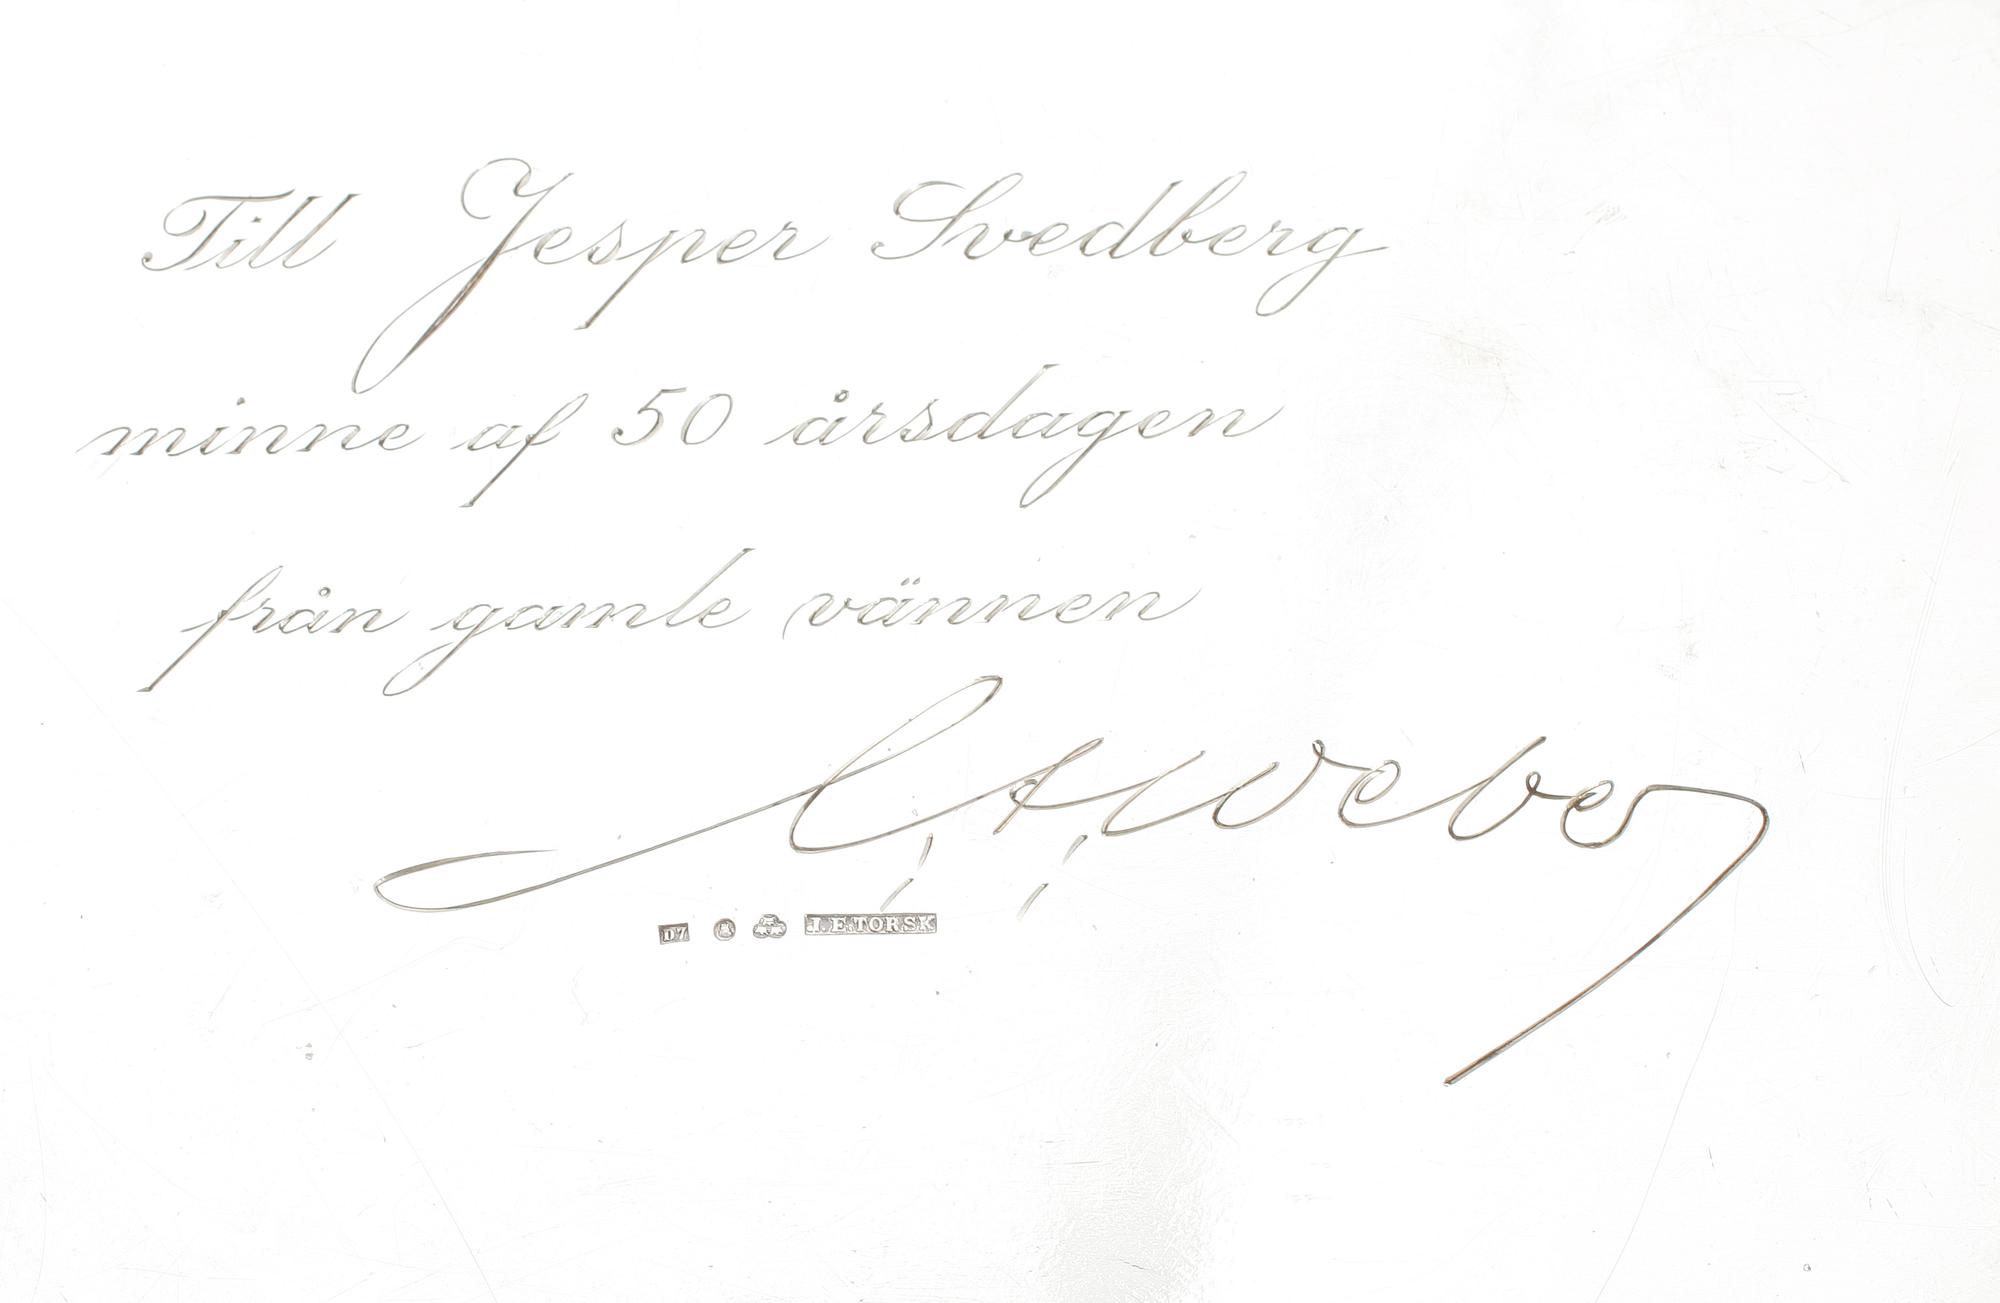 Till Jesper Svedberg
minne af 50 årsdagen
från gamle vännen
Weber
D7 I.E.TORSK